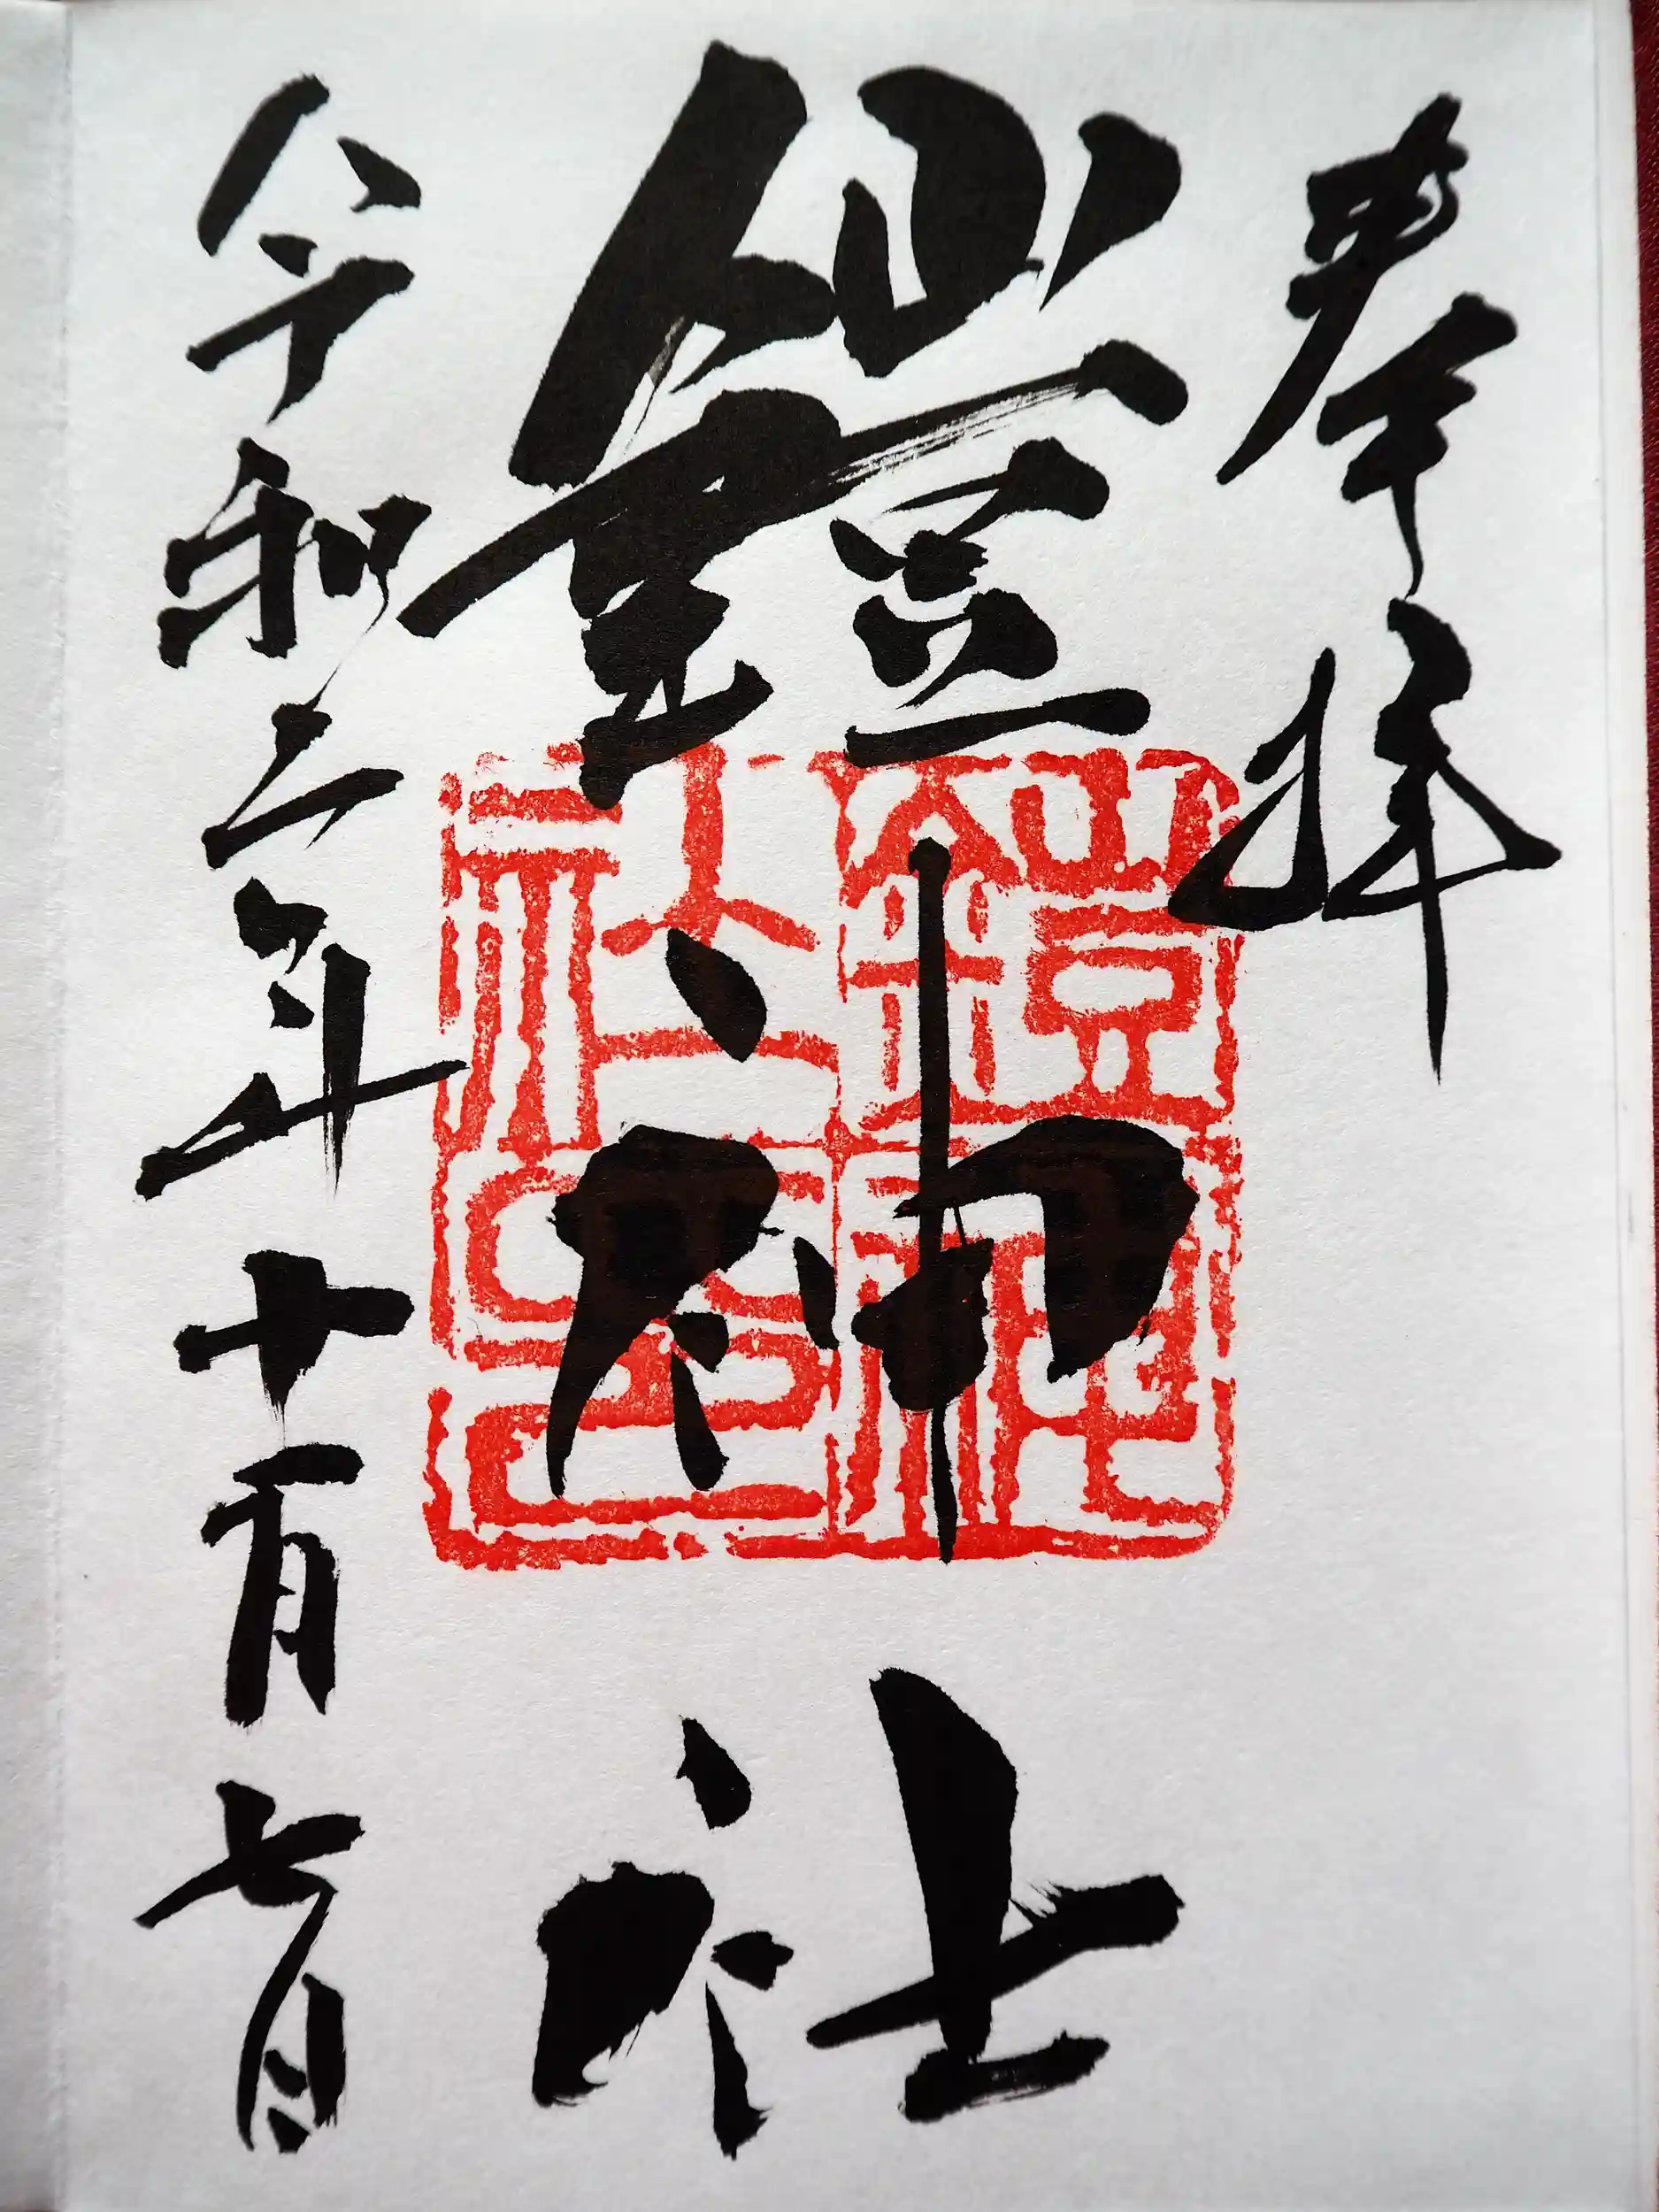 奉拝
鎧神社
令和二年十一月七日
鎧神社印